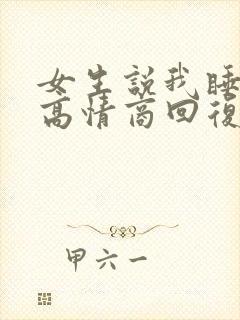 女生說我睡
高情商回復
甲六一